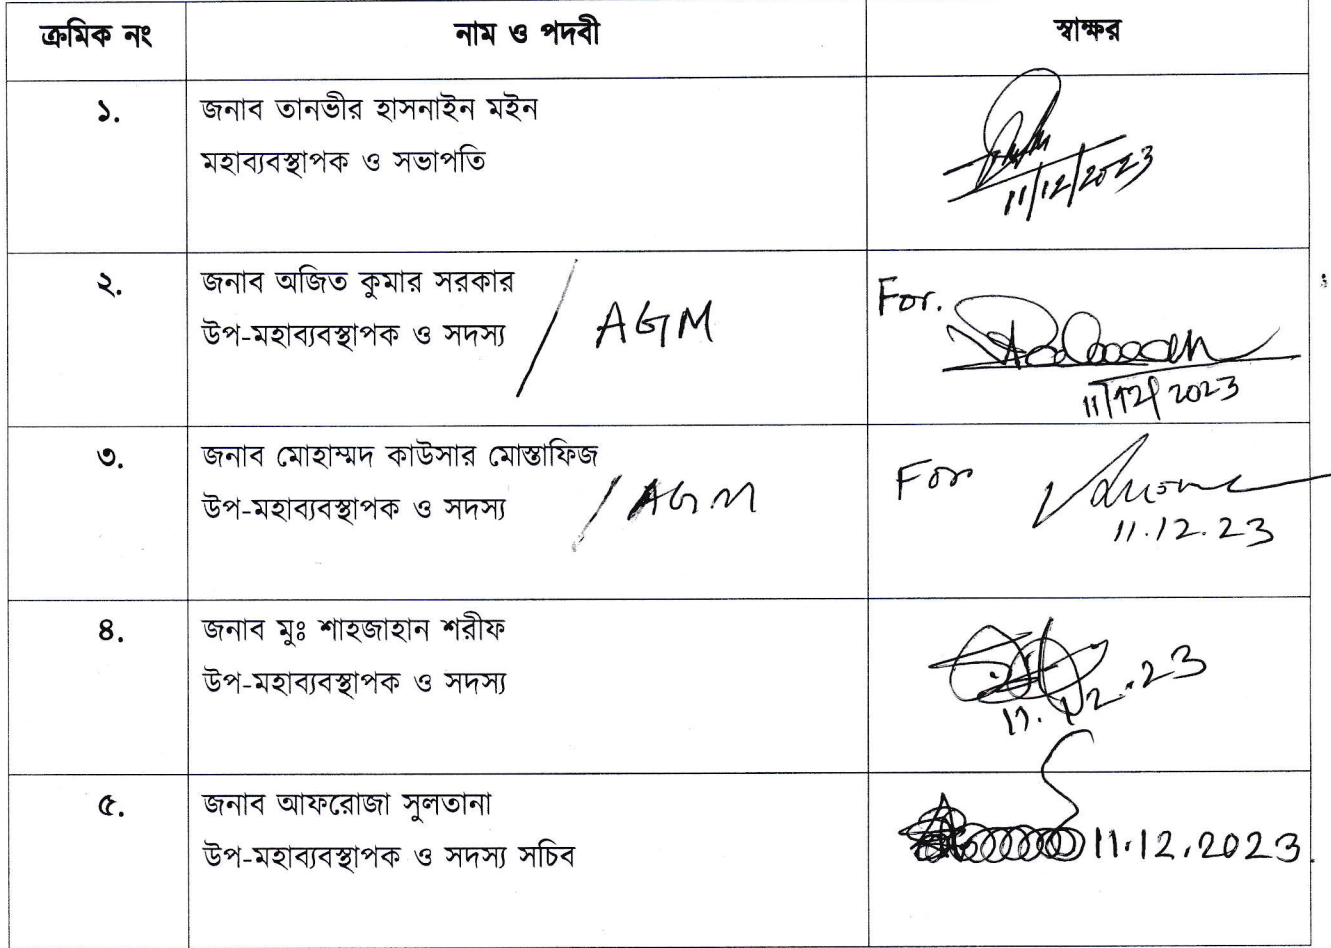 ক্রমিক নং নাম ও পদবী স্বাক্ষর
১. জনাব তানভীর হাসনাইন মইন
মহাব্যবস্থাপক ও সভাপতি
11/12/2023
২. জনাব অজিত কুমার সরকার For.
উপ-মহাব্যবস্থাপক ও সদস্য / AGM
11/12/2023
৩. জনাব মোহাম্মদ কাউসার মোস্তাফিজ For
উপ-মহাব্যবস্থাপক ও সদস্য / AGM
11.12.23
৪. জনাব মুঃ শাহজাহান শরীফ
উপ-মহাব্যবস্থাপক ও সদস্য
11.12.23
৫. জনাব আফরোজা সুলতানা
উপ-মহাব্যবস্থাপক ও সদস্য সচিব 11.12.2023